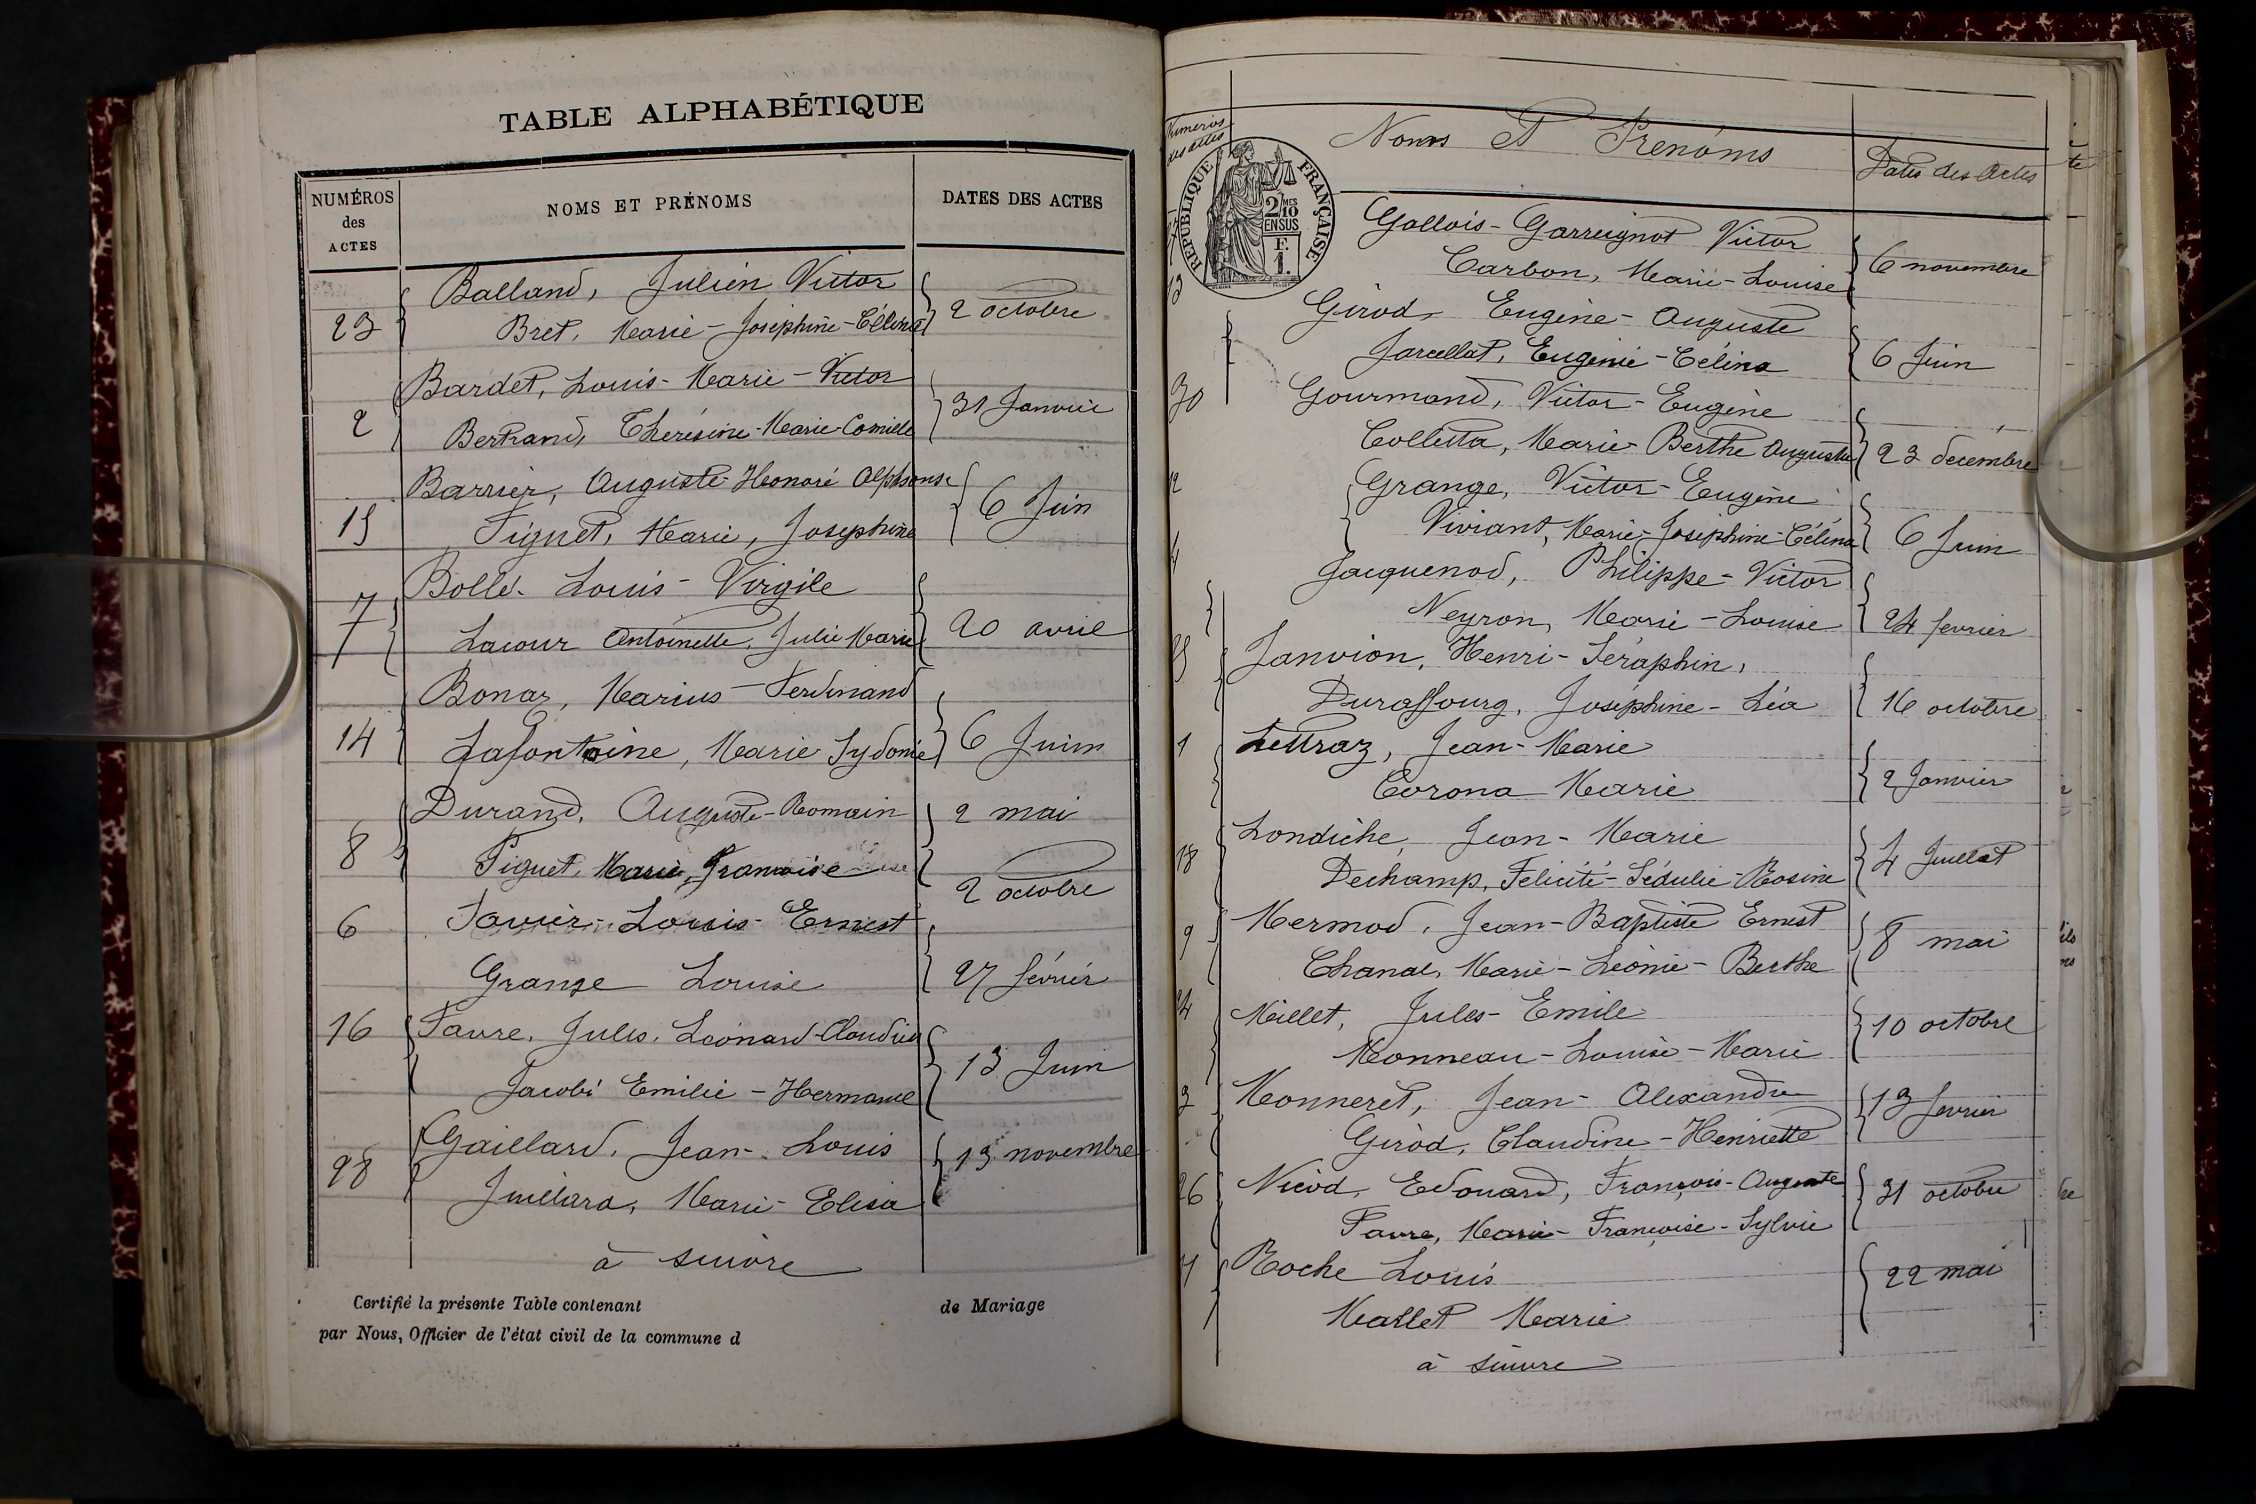 TABLE ALPHABÉTIQUE
NUMÉROS
des
ACTES
NOMS ET PRÉNOMS
DATES DES ACTES
Balland, Julien Victor
23 Bret, Marie-Joséphine-Célina 2 octobre
Bardet, Louis-Marie-Victor
2 Bertrand, Thérésine-Marie-Camille 31 Janvier
Barrier, Auguste Honoré Alphonse
15 Figuet, Marie, Josephine 6 Juin
Bolle. Louis-Virgile
7 Lacour Antoinette, Julie Marie 20 avril
Bonaz, Marius-Ferdinand
14 Lafontaine, Marie Sydonie 6 Juin
Durand, Auguste-Romain 2 mai
8 Figuet, Marie, Francoise
2 octobre
6 Favier-Louis-Ernest
Grange Louise 27 février
16 Favre, Jules, Léonard-Claudius
Jacobi Emilie-Hermance 13 Juin
Gaillard, Jean-Louis
28 Juillard, Marie-Elisa 13 novembre
à suivre
Certifié la présente Table contenant de Mariage
par Nous, Officier de l'état civil de la commune d
Numéros
des actes
Noms et Prénoms
Dates des Actes
RÉPUBLIQUE FRANÇAISE
2/10
MES
EN SUS
F.
1.
Gallois-Garreignot Victor
Carbon, Marie-Louise 6 novembre
13 Girod, Eugène-Auguste
Jarcellat, Eugénie-Célina 6 Juin
30 Gourmand, Victor-Eugène
Colletta, Marie-Berthe Augusta 23 décembre
12 Grange, Victor-Eugène
Viviant, Marie-Joséphine-Célina 6 Juin
4 Jacquenod, Philippe-Victor
Neyron, Marie-Louise 24 fevrier
25 Janvion, Henri-Séraphin,
Duraffourg, Joséphine-Léa 16 octobre
1 Lettraz, Jean-Marie
Corona Marie 2 Janvier
18 Londiche, Jean-Marie
Dechamp, Felicité-Sédulie-Rosine 4 Juillet
9 Mermod, Jean-Baptiste Ernest
Chanal, Marie-Léonie-Berthe 8 mai
24 Millet, Jules-Emile
Monneau-Louise-Marie 10 octobre
3 Monneret, Jean-Alexandre
Girod, Claudine-Henriette 13 fevrier
26 Nicod, Edouard, François-Auguste
Favre, Marie-Françoise-Sylvie 31 octobre
11 Roche Louis
Mallet Marie 22 mai
à suivre